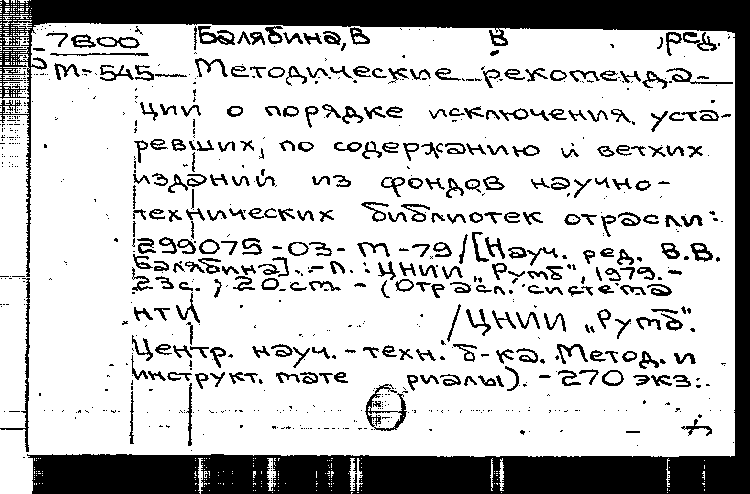 7800 Балябина, В В , ред.
М-545 Методические рекоменда-
ции о порядке исключения уста-
ревших, по содержанию и ветхих
изданий из фондов научно-
технических библиотек отрасли:
299075-03-М-79/[Науч. ред. В.В.
Балябина]. - Л.: ЦНИИ „Румб", 1979. -
23с.; 20 см - (Отрасл. система
НТИ /ЦНИИ „Румб".
Центр. науч.-техн. б-ка. Метод. и
инструкт. мате риалы). - 270 экз.